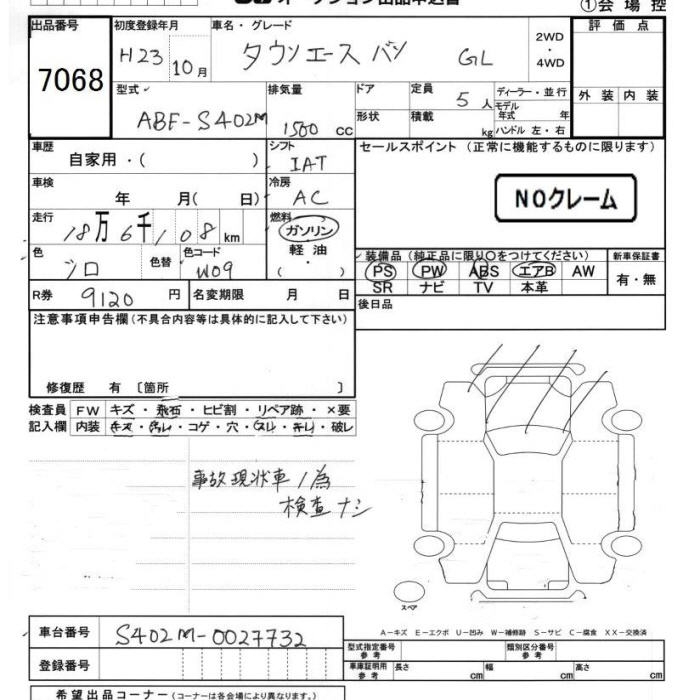 オークション出品申込書 ①会場控
出品番号 初度登録年月 車名・グレード 2WD・4WD 評価点
7068 H23 10月 タウンエース バン GL
型式 排気量 ドア 定員 5人 ディーラー・並行 外装 内装
ABF-S402M 1500cc 形状 積載 kg モデル年式 年 ハンドル 左・右
車歴 自家用・( ) シフト IAT セールスポイント(正常に機能するものに限ります)
車検 年 月( 日) 冷房 AC NOクレーム
走行 18万6千108km 燃料 ガソリン 軽油・( )
色 シロ 色替 色コード W09 装備品(純正品に限り○をつけてください) 新車保証書
PS PW ABS エアB AW 有・無
SR ナビ TV 本革
R券 9120円 名変期限 月 日 後日品
注意事項申告欄(不具合内容等は具体的に記入して下さい)
修復歴 有 [箇所 ]
検査員 FW キズ・飛石・ヒビ割・リペア跡・×要
記入欄 内装 キズ・汚レ・コゲ・穴・スレ・キレ・破レ
事故現状車ノ為
検査ナシ
スペア
A-キズ E-エクボ U-凹み W-補修跡 S-サビ C-腐食 XX-交換済
車台番号 S402M-0027732 型式指定番号 参考 類別区分番号 参考
登録番号 車庫証明用 参考 長さ cm 幅 cm 高さ cm
希望出品コーナー(コーナーは各会場により異なります。)